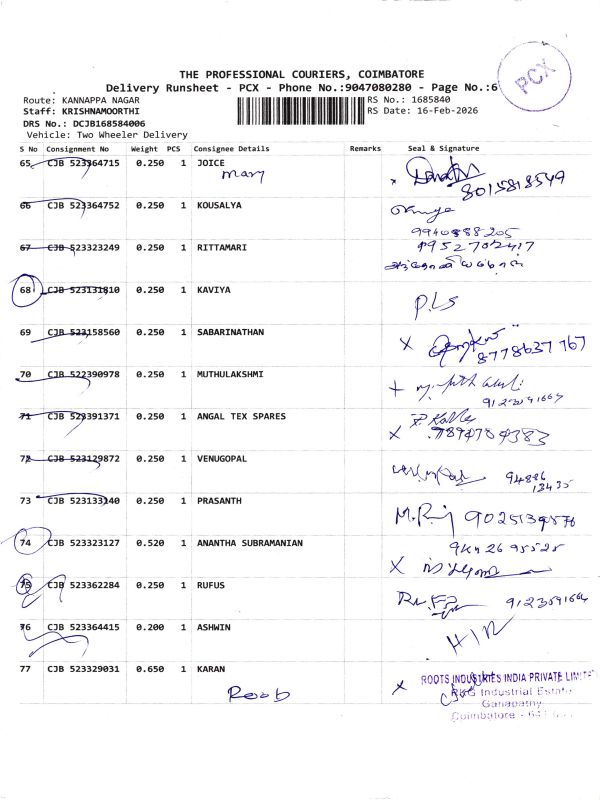 PCX
THE PROFESSIONAL COURIERS, COIMBATORE
Delivery Runsheet - PCX - Phone No.:9047080280 - Page No.:6
Route: KANNAPPA NAGAR
RS No.: 1685840
Staff: KRISHNAMOORTHI
RS Date: 16-Feb-2026
DRS No.: DCJB168584006
Vehicle: Two Wheeler Delivery
S No Consignment No Weight PCS Consignee Details Remarks Seal & Signature
65 CJB 523364715 0.250 1 JOICE
Mary
8015818549
66 CJB 523364752 0.250 1 KOUSALYA
9940888205
67 CJB 523323249 0.250 1 RITTAMARI
9952702417
68 CJB 523131810 0.250 1 KAVIYA
P.LS
69 CJB 523158560 0.250 1 SABARINATHAN
8778637767
70 CJB 522390978 0.250 1 MUTHULAKSHMI
71 CJB 523391371 0.250 1 ANGAL TEX SPARES
7894784383
72 CJB 523129872 0.250 1 VENUGOPAL
94886
13435
73 CJB 523133140 0.250 1 PRASANTH
74 CJB 523323127 0.520 1 ANANTHA SUBRAMANIAN
75 CJB 523362284 0.250 1 RUFUS
76 CJB 523364415 0.200 1 ASHWIN
77 CJB 523329031 0.650 1 KARAN
Roob
ROOTS INDUSTRIES INDIA PRIVATE LIMITE
RKG Industrial Estate
Ganapathy
Coimbatore - 641